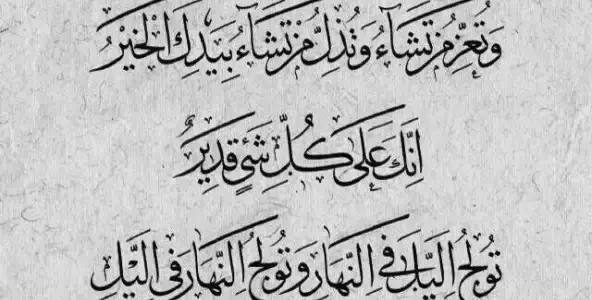 وَتُعِزُّ مَنْ تَشَآءُ وَتُذِلُّ مَنْ تَشَآءُ بِيَدِكَ الْخَيْرُ
اِنَّكَ عَلَى كُلِّ شَيْءٍ قَدِيْرٌ
تُولِجُ الَّيْلَ فِي النَّهَارِ وَتُولِجُ النَّهَارَ فِي الَّيْلِ